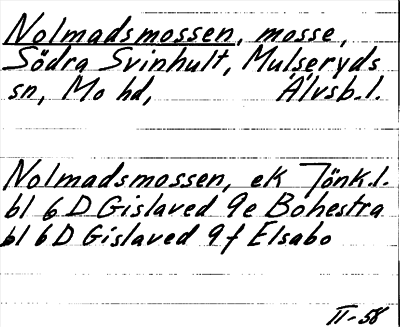 Nolmadsmossen, mosse,
Södra Svinhult, Mulseryds
sn, Mo hd, Älvsb.l.
Nolmadsmossen, ek Jönk.l.
bl 6 D Gislaved 9e Bohestra
bl 6 D Gislaved 9f Elsabo
II-58